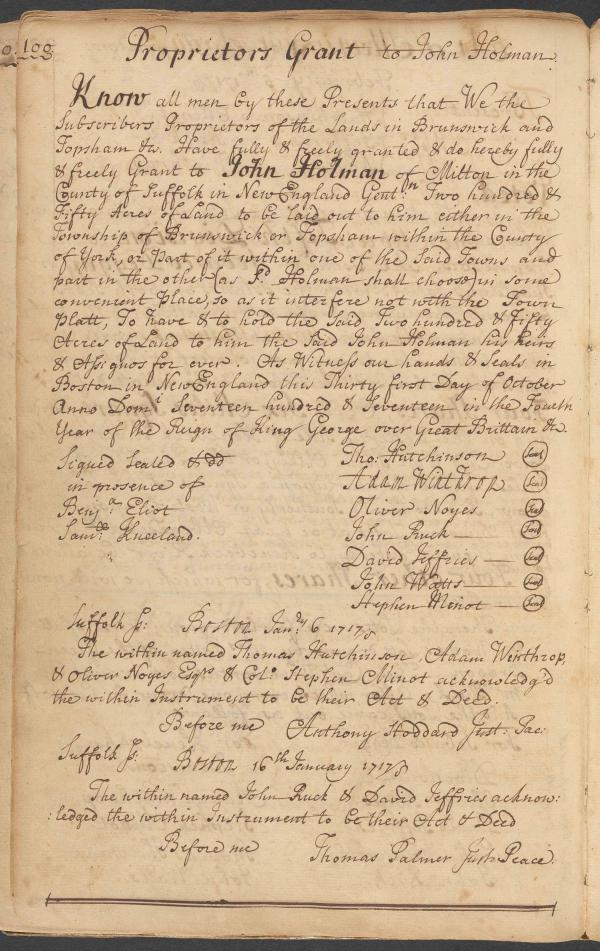 o. 100.
Proprietors Grant to John Holman.
Know all men by these Presents that We the
Subscribers Proprietors of the Lands in Brunswick and
Topsham &c. Have fully & freely granted & do hereby fully
& freely Grant to John Holman of Milton in the
County of Suffolk in New England Gentn. Two hundred &
Fifty Acres of Land to be laid out to him either in the
Township of Brunswick or Topsham within the County
of York, or part of it within one of the Said Towns and
part in the other (as Sd. Holman shall choose) in some
convenient Place, so as it interfere not with the Town
Platt, To have & to hold the Said Two hundred & Fifty
Acres of Land to him the Said John Holman his heirs
& Assignes for ever. As Witness our hands & Seals in
Boston in New England this Thirty first Day of October
Anno Domi. Seventeen hundred & Seventeen in the Fourth
Year of the Reign of King George over Great Brittain &c.
Signed Sealed & dd Tho: Hutchinson Seal
in presence of Adam Winthrop Seal
Benja. Eliot Oliver Noyes Seal
Samll. Kneeland. John Ruck Seal
David Jeffries Seal
John Watts Seal
Stephen Minot Seal
Suffolk Ss: Boston Janry. 6 1717/8
The within named Thomas Hutchinson, Adam Winthrop,
& Oliver Noyes Esqrs & Colo. Stephen Minot acknowledg'd
the within Instrument to be their Act & Deed.
Before me Anthony Stoddard Just: Pac:
Suffolk Ss: Boston 16th January 1717/8
The within named John Ruck & David Jeffries acknow:
:ledged the within Instrument to be their Act & Deed
Before me Thomas Palmer Just: Peace.